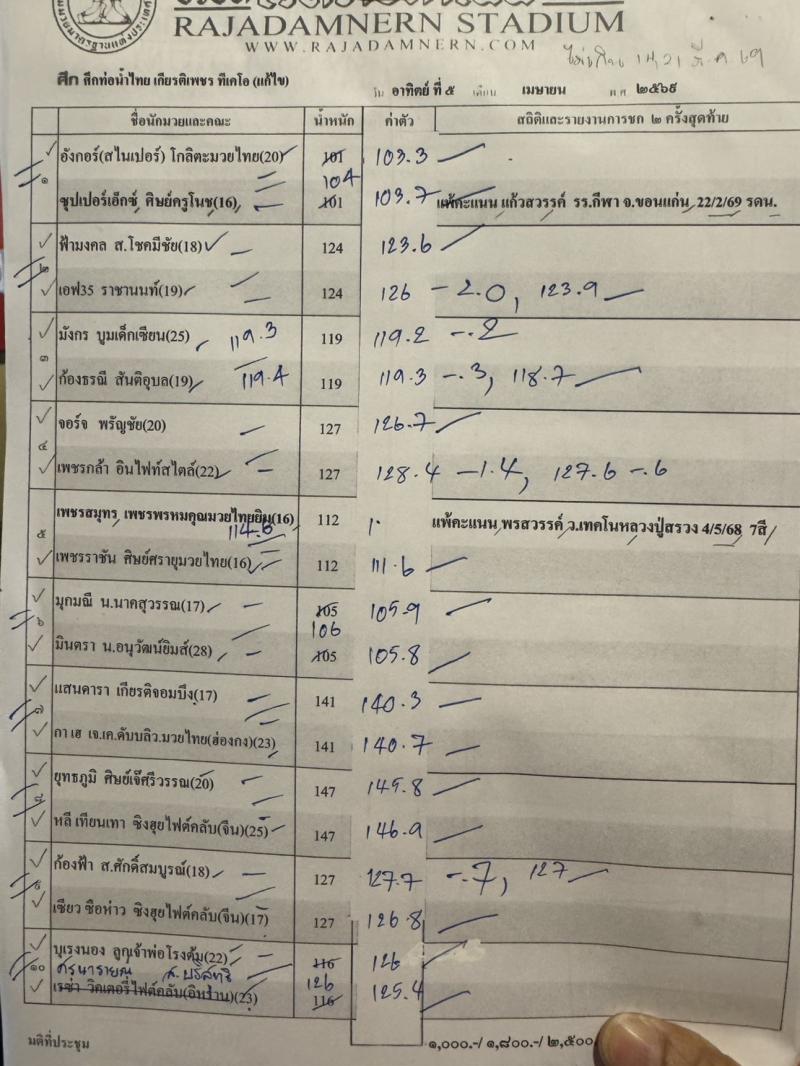 RAJADAMNERN STADIUM
WWW.RAJADAMNERN.COM
ศึก ศึกท่อน้ำไทย เกียรติเพชร ทีเคโอ (แก้ไข)
วัน อาทิตย์ ที่ ๕ เดือน เมษายน พ ศ ๒๕๖๙
ชื่อนักมวยและคณะ น้ำหนัก ค่าตัว สถิติและรายงานการชก ๒ ครั้งสุดท้าย
๑
อังกอร์(สไนเปอร์) โกลิตะมวยไทย(20) 101 103.3
104
ซุปเปอร์เอ็กซ์ ศิษย์ครูโนช(16) 101 103.7 แพ้คะแนน แก้วสวรรค์ รร.กีฬา จ.ขอนแก่น 22/2/69 รดน.
ฟ้ามงคล ส.โชคมีชัย(18) 124 123.6
๒
เอฟ35 ราชานนท์(19) 124 126 -2.0, 123.9
มังกร บูมเด็กเซียน(25) 119.3 119 119.2 -.2
๓
ก้องธรณี สันติอุบล(19) 119.4 119 119.3 -.3, 118.7
จอร์จ พรัญชัย(20) 127 126.7
๔
เพชรกล้า อินไฟท์สไตล์(22) 127 128.4 -1.4, 127.6 -.6
เพชรสมุทร เพชรพรหมคุณมวยไทยยิม(16) 112 1. แพ้คะแนน พรสวรรค์ ว.เทคโนหลวงปู่สรวง 4/5/68 7สี
114.6
๕
เพชรราชัน ศิษย์ศรายุมวยไทย(16) 112 111.6
มุกมณี น.นาคสุวรรณ(17) 105 105.9
๖ 106
มินตรา น.อนุวัฒน์ยิมส์(28) 105 105.8
แสนดารา เกียรติจอมบึง(17) 141 140.3
๗
กา เฮ เจ.เค.ดับบลิว.มวยไทย(ฮ่องกง)(23) 141 140.7
ยุทธภูมิ ศิษย์เจ๊ศรีวรรณ(20) 147 145.8
๘
หลี เทียนเทา ชิงฮุยไฟต์คลับ(จีน)(25) 147 146.9
ก้องฟ้า ส.ศักดิ์สมบูรณ์(18) 127 127.7 -.7, 127
๙
เซียว ซือห่าว ชิงฮุยไฟต์คลับ(จีน)(17) 127 126.8
บุเรงนอง ลูกเจ้าพ่อโรงต้ม(22) 116 126
๑๐ ศรนารายณ์ ส. 126
เรซ่า วิคเตอรี่ไฟต์คลับ(อิหร่าน)(23) 116 125.4
มติที่ประชุม ๑,๐๐๐.-/ ๑,๘๐๐.-/ ๒,๕๐๐